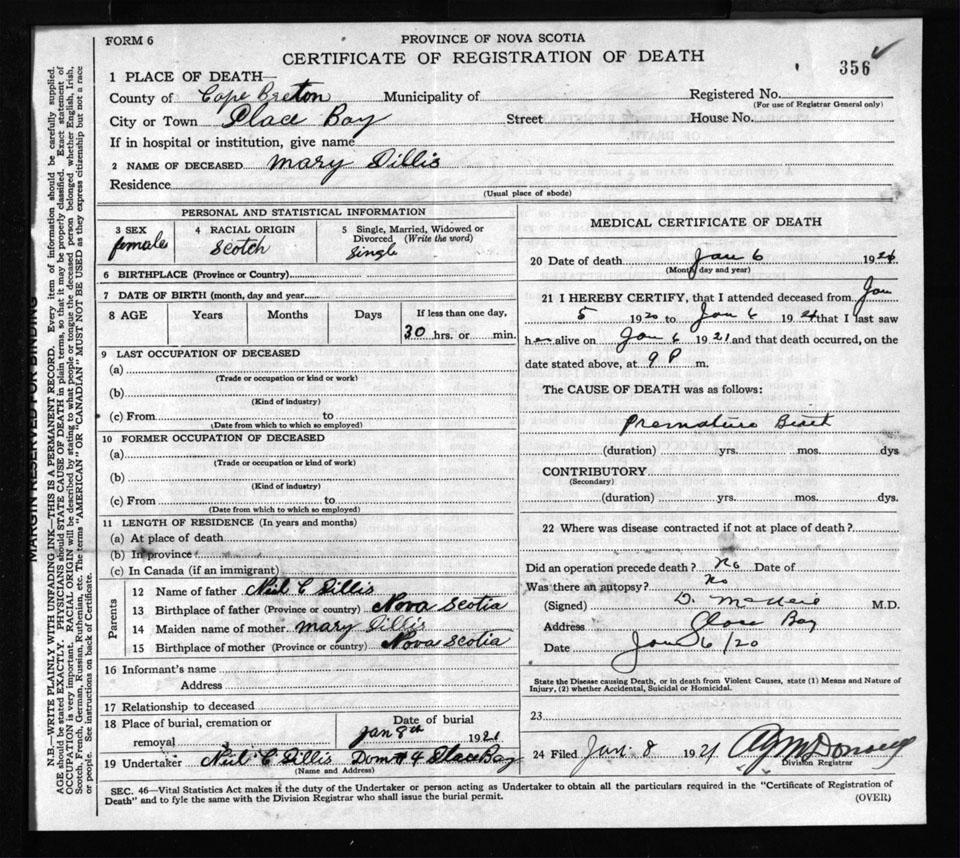 FORM 6
PROVINCE OF NOVA SCOTIA
CERTIFICATE OF REGISTRATION OF DEATH
356
1 PLACE OF DEATH—
County of Cape Breton Municipality of
Registered No.
(For use of Registrar General only)
City or Town Glace Bay Street House No.
If in hospital or institution, give name
2 NAME OF DECEASED Mary Gillis
Residence
(Usual place of abode)
PERSONAL AND STATISTICAL INFORMATION
3 SEX female
4 RACIAL ORIGIN Scotch
5 Single, Married, Widowed or
Divorced (Write the word)
Single
6 BIRTHPLACE (Province or Country)
7 DATE OF BIRTH (month, day and year)
8 AGE Years Months Days If less than one day,
30 hrs. or min.
9 LAST OCCUPATION OF DECEASED
(a)
(Trade or occupation or kind or work)
(b)
(Kind of industry)
(c) From to
(Date from which to which so employed)
10 FORMER OCCUPATION OF DECEASED
(a)
(Trade or occupation or kind of work)
(b)
(Kind of industry)
(c) From to
(Date from which to which so employed)
11 LENGTH OF RESIDENCE (In years and months)
(a) At place of death
(b) In province
(c) In Canada (if an immigrant)
Parents
12 Name of father Neil C Gillis
13 Birthplace of father (Province or country) Nova Scotia
14 Maiden name of mother Mary Gillis
15 Birthplace of mother (Province or country) Nova Scotia
16 Informant's name
Address
17 Relationship to deceased
18 Place of burial, cremation or
removal
Date of burial
Jan 8th 1921
19 Undertaker Neil C Gillis Dom # 4 Glace Bay
(Name and Address)
MEDICAL CERTIFICATE OF DEATH
20 Date of death Jan 6 192
(Month, day and year)
21 I HEREBY CERTIFY, that I attended deceased from Jan
5 1920 to Jan 6 192 that I last saw
her alive on Jan 6 1921 and that death occurred, on the
date stated above, at 9 P m.
The CAUSE OF DEATH was as follows:
Premature Birth
(duration) yrs. mos. dys
CONTRIBUTORY
(Secondary)
(duration) yrs. mos. dys.
22 Where was disease contracted if not at place of death?
Did an operation precede death? No Date of
Was there an autopsy? No
(Signed) D. McNeil M.D.
Address Glace Bay
Date Jan 6/20
State the Disease causing Death, or in death from Violent Causes, state (1) Means and Nature of
Injury, (2) whether Accidental, Suicidal or Homicidal.
23
24 Filed Jan. 8 1921
Division Registrar
SEC. 46—Vital Statistics Act makes it the duty of the Undertaker or person acting as Undertaker to obtain all the particulars required in the "Certificate of Registration of
Death" and to fyle the same with the Division Registrar who shall issue the burial permit.
(OVER)
MARGIN RESERVED FOR BINDING
N.B.—WRITE PLAINLY WITH UNFADING INK—THIS IS A PERMANENT RECORD. Every item of information should be carefully supplied.
AGE should be stated EXACTLY. PHYSICIANS should STATE CAUSE OF DEATH in plain terms, so that it may be properly classified. Exact statement of
OCCUPATION is very important. RACIAL ORIGIN will be described by stating to what people or tongue the deceased person belonged whether English, Irish,
Scotch, French, German, Russian, Ruthenian, etc. The terms "AMERICAN" OR "CANADIAN" MUST NOT BE USED as they express citizenship but not a race
or people. See instructions on back of Certificate.